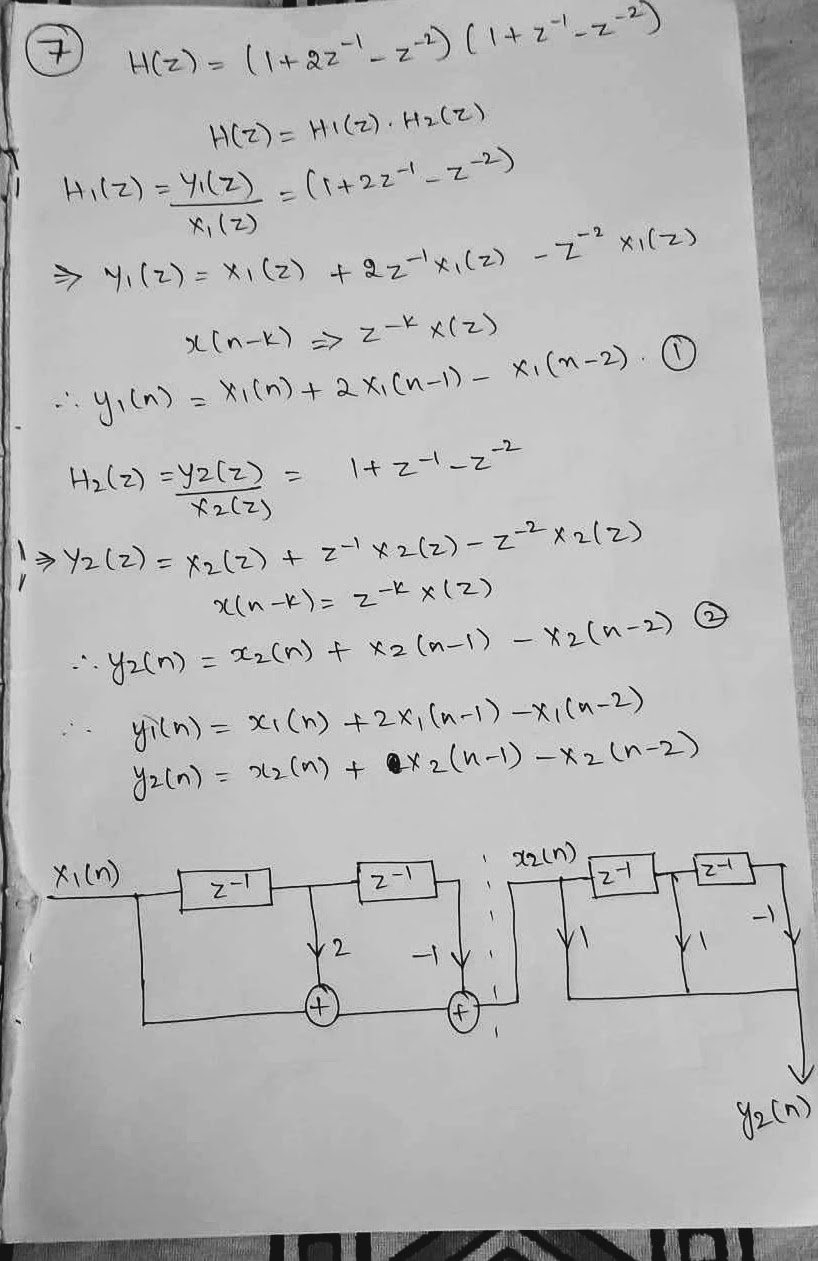 ⑦ H(z) = (1+2z⁻¹-z⁻²) (1+z⁻¹-z⁻²)
H(z) = H1(z). H₂(z)
H₁(z) = Y₁(z)/X₁(z) = (1+2z⁻¹-z⁻²)
⇒ Y₁(z) = X₁(z) + 2z⁻¹X₁(z) - z⁻² X₁(z)
x(n-k) ⇒ z⁻ᵏ X(z)
∴ y₁(n) = X₁(n) + 2X₁(n-1) - X₁(n-2). ①
H₂(z) = Y2(z)/X2(z) = 1+z⁻¹-z⁻²
⇒ Y2(z) = X2(z) + z⁻¹ X2(z) - z⁻² X2(z)
x(n-k) = z⁻ᵏ X(z)
∴ y2(n) = x2(n) + X2(n-1) - X2(n-2) ②
∴ y1(n) = x₁(n) + 2X₁(n-1) - X₁(n-2)
y2(n) = x2(n) + X2(n-1) - X2(n-2)
X₁(n) z-1 z-1 x2(n) z-1 z-1
2 -1 1 1 -1
+ +
y2(n)